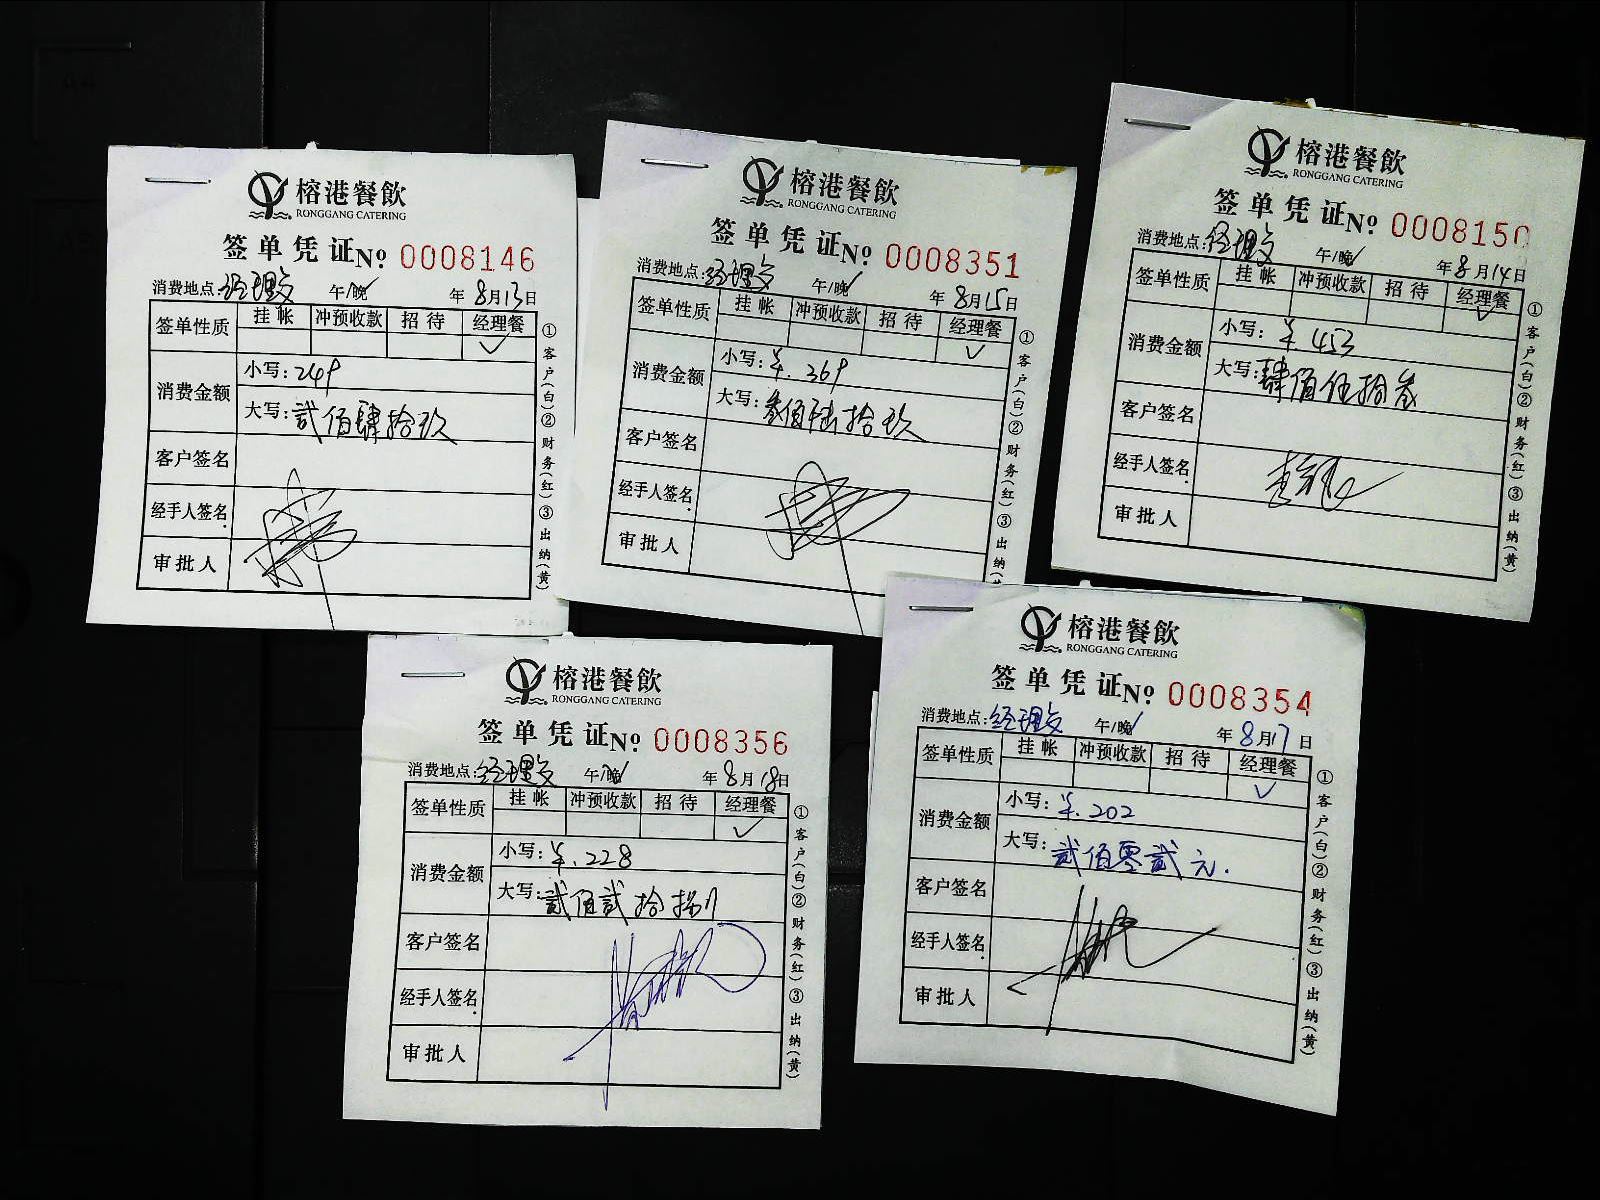 榕港餐飲
RONGGANG CATERING
签单凭证№ 0008146
消费地点:经理餐 午/晚✓ 年8月13日
签单性质 挂帐 冲预收款 招待 经理餐
✓
消费金额 小写: 249
大写: 贰佰肆拾玖
客户签名
经手人签名
审批人
①客户(白)②财务(红)③出纳(黄)
榕港餐飲
RONGGANG CATERING
签单凭证№ 0008351
消费地点:经理餐 午/晚✓ 年8月15日
签单性质 挂帐 冲预收款 招待 经理餐
✓
消费金额 小写: ¥.369
大写: 叁佰陆拾玖
客户签名
经手人签名
审批人
①客户(白)②财务(红)③出纳(黄
榕港餐飲
RONGGANG CATERING
签单凭证№ 0008150
消费地点:经理餐 午/晚✓ 年8月14日
签单性质 挂帐 冲预收款 招待 经理餐
✓
消费金额 小写: ¥ 453
大写: 肆佰伍拾叁
客户签名
经手人签名
审批人
①客户(白)②财务(红)③出纳(黄)
榕港餐飲
RONGGANG CATERING
签单凭证№ 0008356
消费地点:经理餐 午/晚✓ 年8月18日
签单性质 挂帐 冲预收款 招待 经理餐
✓
消费金额 小写: ¥.228
大写: 贰佰贰拾捌
客户签名
经手人签名
审批人
①客户(白)②财务(红)③出纳(黄)
榕港餐飲
RONGGANG CATERING
签单凭证№ 0008354
消费地点:经理餐 午/晚✓ 年8月17日
签单性质 挂帐 冲预收款 招待 经理餐
✓
消费金额 小写: ¥.202
大写: 贰佰零贰元.
客户签名
经手人签名
审批人
①客户(白)②财务(红)③出纳(黄)